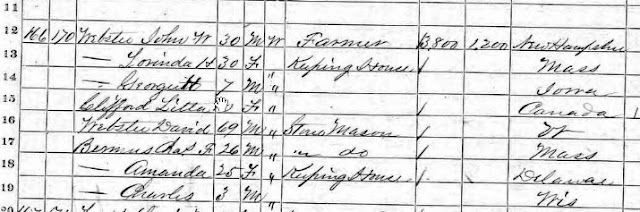 11
12 166 170 Webster John W 30 M W Farmer 3,800 1,200 New Hampshire
13 — Lorinda H 30 F " Keeping House Mass
14 — George H 7 M " Iowa
15 Clifford Lilla F " Canada 1
16 Webster David 69 M " Stone Mason Vt
17 Bemus Chas F 26 M " " do Mass
18 — Amanda 25 F " Keeping House Delaware
19 — Charles 3 M " Wis
20